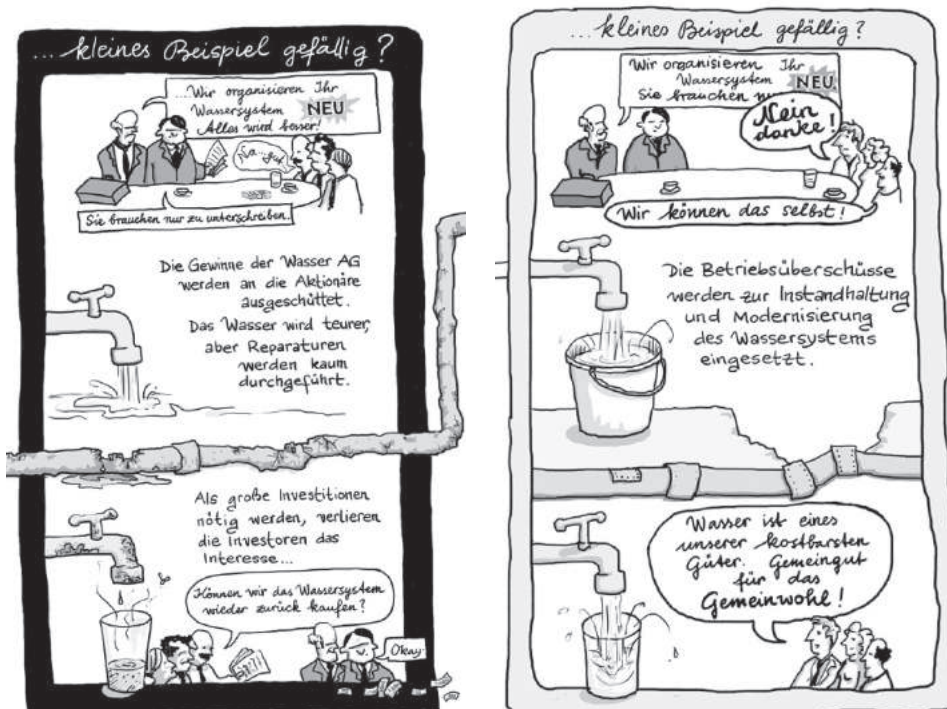 ... kleines Beispiel gefällig?
...Wir organisieren Ihr
Wassersystem NEU
Alles wird besser!
Na gut
Sie brauchen nur zu unterschreiben.
Die Gewinne der Wasser AG
werden an die Aktionäre
ausgeschüttet.
Das Wasser wird teurer,
aber Reparaturen
werden kaum
durchgeführt.
Als große Investitionen
nötig werden, verlieren
die Investoren das
Interesse...
Können wir das Wassersystem
wieder zurück kaufen?
Okay.
... kleines Beispiel gefällig?
Wir organisieren Ihr
Wassersystem NEU
Sie brauchen
Nein
danke!
Wir können das selbst!
Die Betriebsüberschüsse
werden zur Instandhaltung
und Modernisierung
des Wassersystems
eingesetzt.
Wasser ist eines
unserer kostbarsten
Güter. Gemeingut
für das
Gemeinwohl!